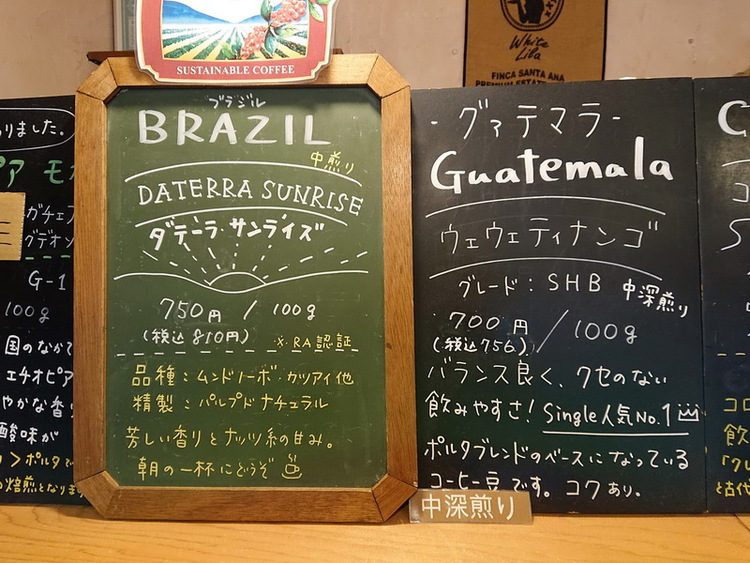 SUSTAINABLE COFFEE
White Lila
FINCA SANTA ANA
PREMIUM ESTATE
りました。
ガチェフ
グデオン
G-1
100g
国のなかで
エチオピア
やかな香り
酸味が
ブラジル
BRAZIL
中煎り
DATERRA SUNRISE
ダテーラ・サンライズ
750円 / 100g
(税込810円)
※RA認証
品種：ムンドノーボ・カツアイ他
精製：パルプドナチュラル
芳しい香りとナッツ系の甘み。
朝の一杯にどうぞ
-グァテマラ-
Guatemala
ウェウェティナンゴ
グレード：SHB 中深煎り
700円 / 100g
(税込756)
バランス良く、クセのない
飲みやすさ! Single人気No.1
ポルタブレンドのベースになっている
コーヒー豆です。コクあり。
中深煎り
コロ
飲